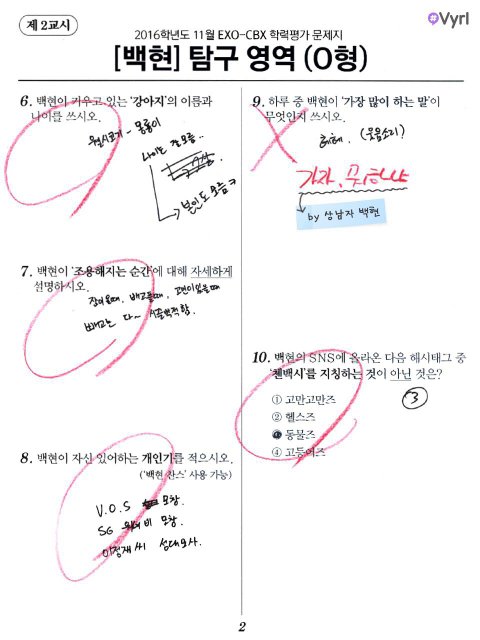 제 2교시
Vyrl
2016학년도 11월 EXO-CBX 학력평가 문제지
[백현] 탐구 영역 (O형)
6. 백현이 키우고 있는 '강아지'의 이름과
나이를 쓰시오.
웰시코기 - 몽룡이
나이는 잘 모름..
본인도 모름 ㅋ
7. 백현이 '조용해지는 순간'에 대해 자세하게
설명하시오.
잠 때, 배고플때, 고민이 있을때
빼고는 다~ 시끌벅적함.
8. 백현이 자신 있어하는 개인기를 적으시오.
('백현 찬스' 사용 가능)
V.O.S 모창.
SG 워너비 모창.
이정재 씨 성대모사.
9. 하루 중 백현이 '가장 많이 하는 말'이
무엇인지 쓰시오.
헤헤. (웃음소리?)
가자, 뭐하냐
by 상남자 백현
10. 백현의 SNS에 올라온 다음 해시태그 중
'첸백시'를 지칭하는 것이 아닌 것은?
③
① 고만고만즈
② 헬스즈
③ 동물즈
④ 고등어즈
2